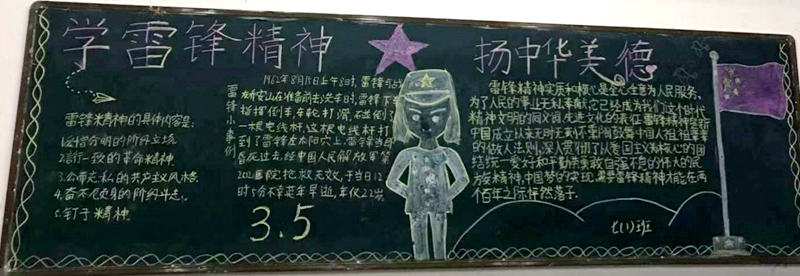 学雷锋精神
扬中华美德
雷锋精神的具体内容是:
1.爱憎分明的阶级立场
2.言行一致的革命精神
3.公而忘私的共产主义风格
4.奋不顾身的阶级斗志
5.钉子精神
雷锋小事例
1962年8月15日上午8时,雷锋与战
友
在准备前去洗车时,雷锋下车
指挥倒车,车轮打滑,碰倒了
一根电线杆,这根电线杆打
到了雷锋左太阳穴上,雷锋当场
昏死过去,经中国人民解放军第
202医院抢救无效,于当日12
时5分不幸英年早逝,年仅22岁
3.5
雷锋精神实质和核心是全心全意为人民服务,
为了人民的事业无私奉献,它已经成为我们这个时代
精神文明的同义词,先进文化的表征.雷锋精神在新
中国成立以来无时无刻不重陶冶着中国人祖祖辈辈
的做人法则,深入贯彻了以爱国主义为核心的团
结统一爱好和平勤劳勇敢自强不息的伟大的民
族精神,中国梦的实现,需要雷锋精神才能在两
个百年之际怦然落子.
七(1)班